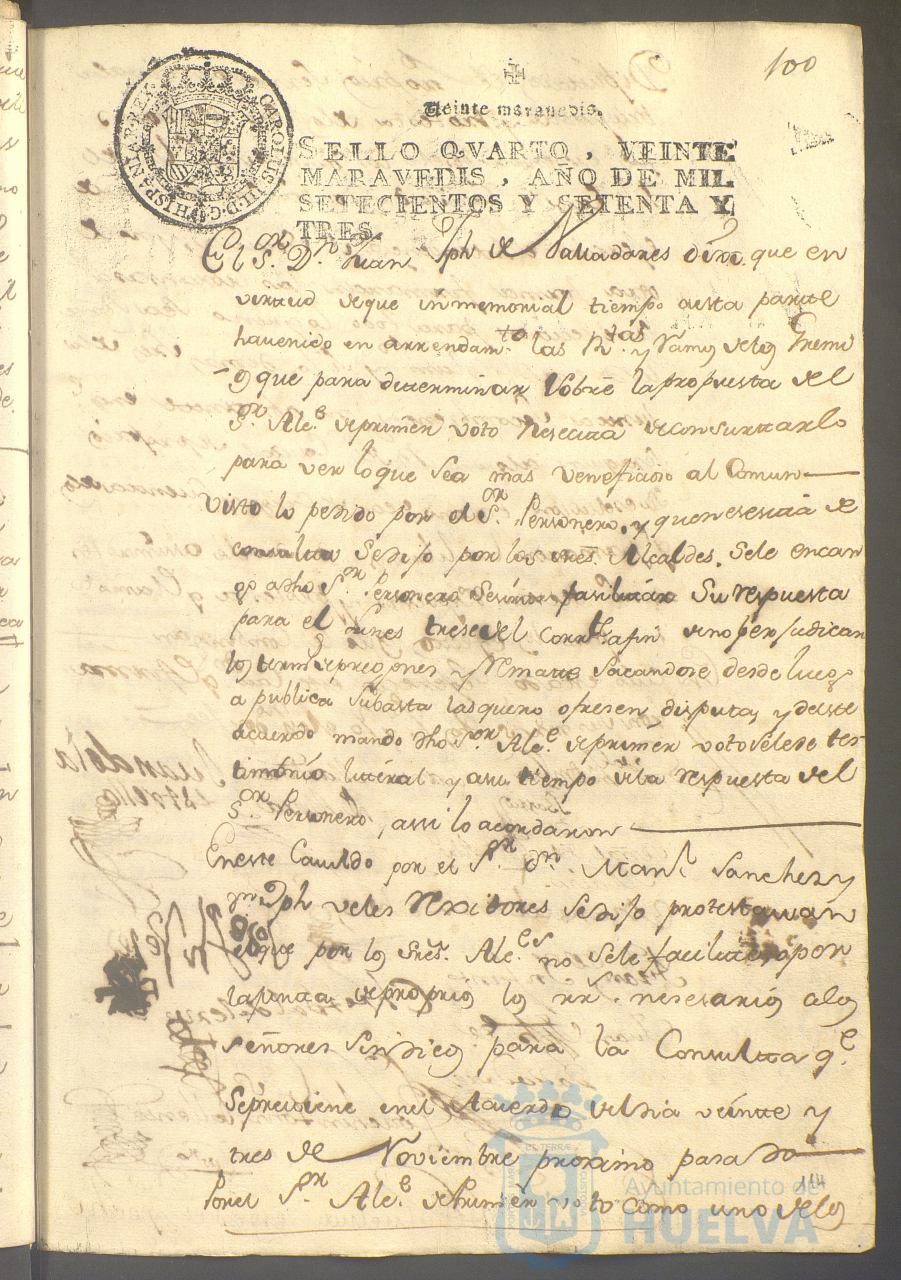 100
Veinte maravedis.
CAROLUS III D.G. HISPANIAR. REX
SELLO QVARTO, VEINTE
MARAVEDIS, AÑO DE MIL
SETECIENTOS Y SETENTA Y
TRES.
El Sor. Dn. Juan Jph de Valladares dixo que en
virtud de que inmemorial tiempo aesta parte
havenido en arrendamto. las Rtas. y Ramos delos Gremi
os que para determinar sobre lapropuesta del
Sor. Alce. deprimer voto nesecita deconsurtarlo
para ver loque sea mas veneficio al Comun
Visto lo pedido por el Sor. Personero, y quenesesita de
consulta sedijo por los sres. Alcaldes, sele encar
go adho Sor. Personero facilitar su respuesta
para el Lunes trese del corrte. afin deno perjudicar
los termos. depregones y Remate sacandose desde luego
a publica subasta lasqueno ofresen disputa, y deeste
acuerdo mando dho Sor. Alce. deprimer voto selede tes
timonio literal y asu tiempo dela respuesta del
Sor. Personero, assi lo acordaron
Eneste Cavildo por el Sor. Dn. Manl. Sanchez y
Dn. Jph veles Rexidores sedijo protestavan
el que por los Sres. Alces. no sele facilite por
lajunta depropios los rrs. nesesarios alos
señores Sindicos para la Consulta qe.
sepreviene enel Acuerdo deldia veinte y
tres de Noviembre proximo pasado
Porel Sor. Alce. dePrimer voto como uno delos
114
Ayuntamiento de
HUELVA